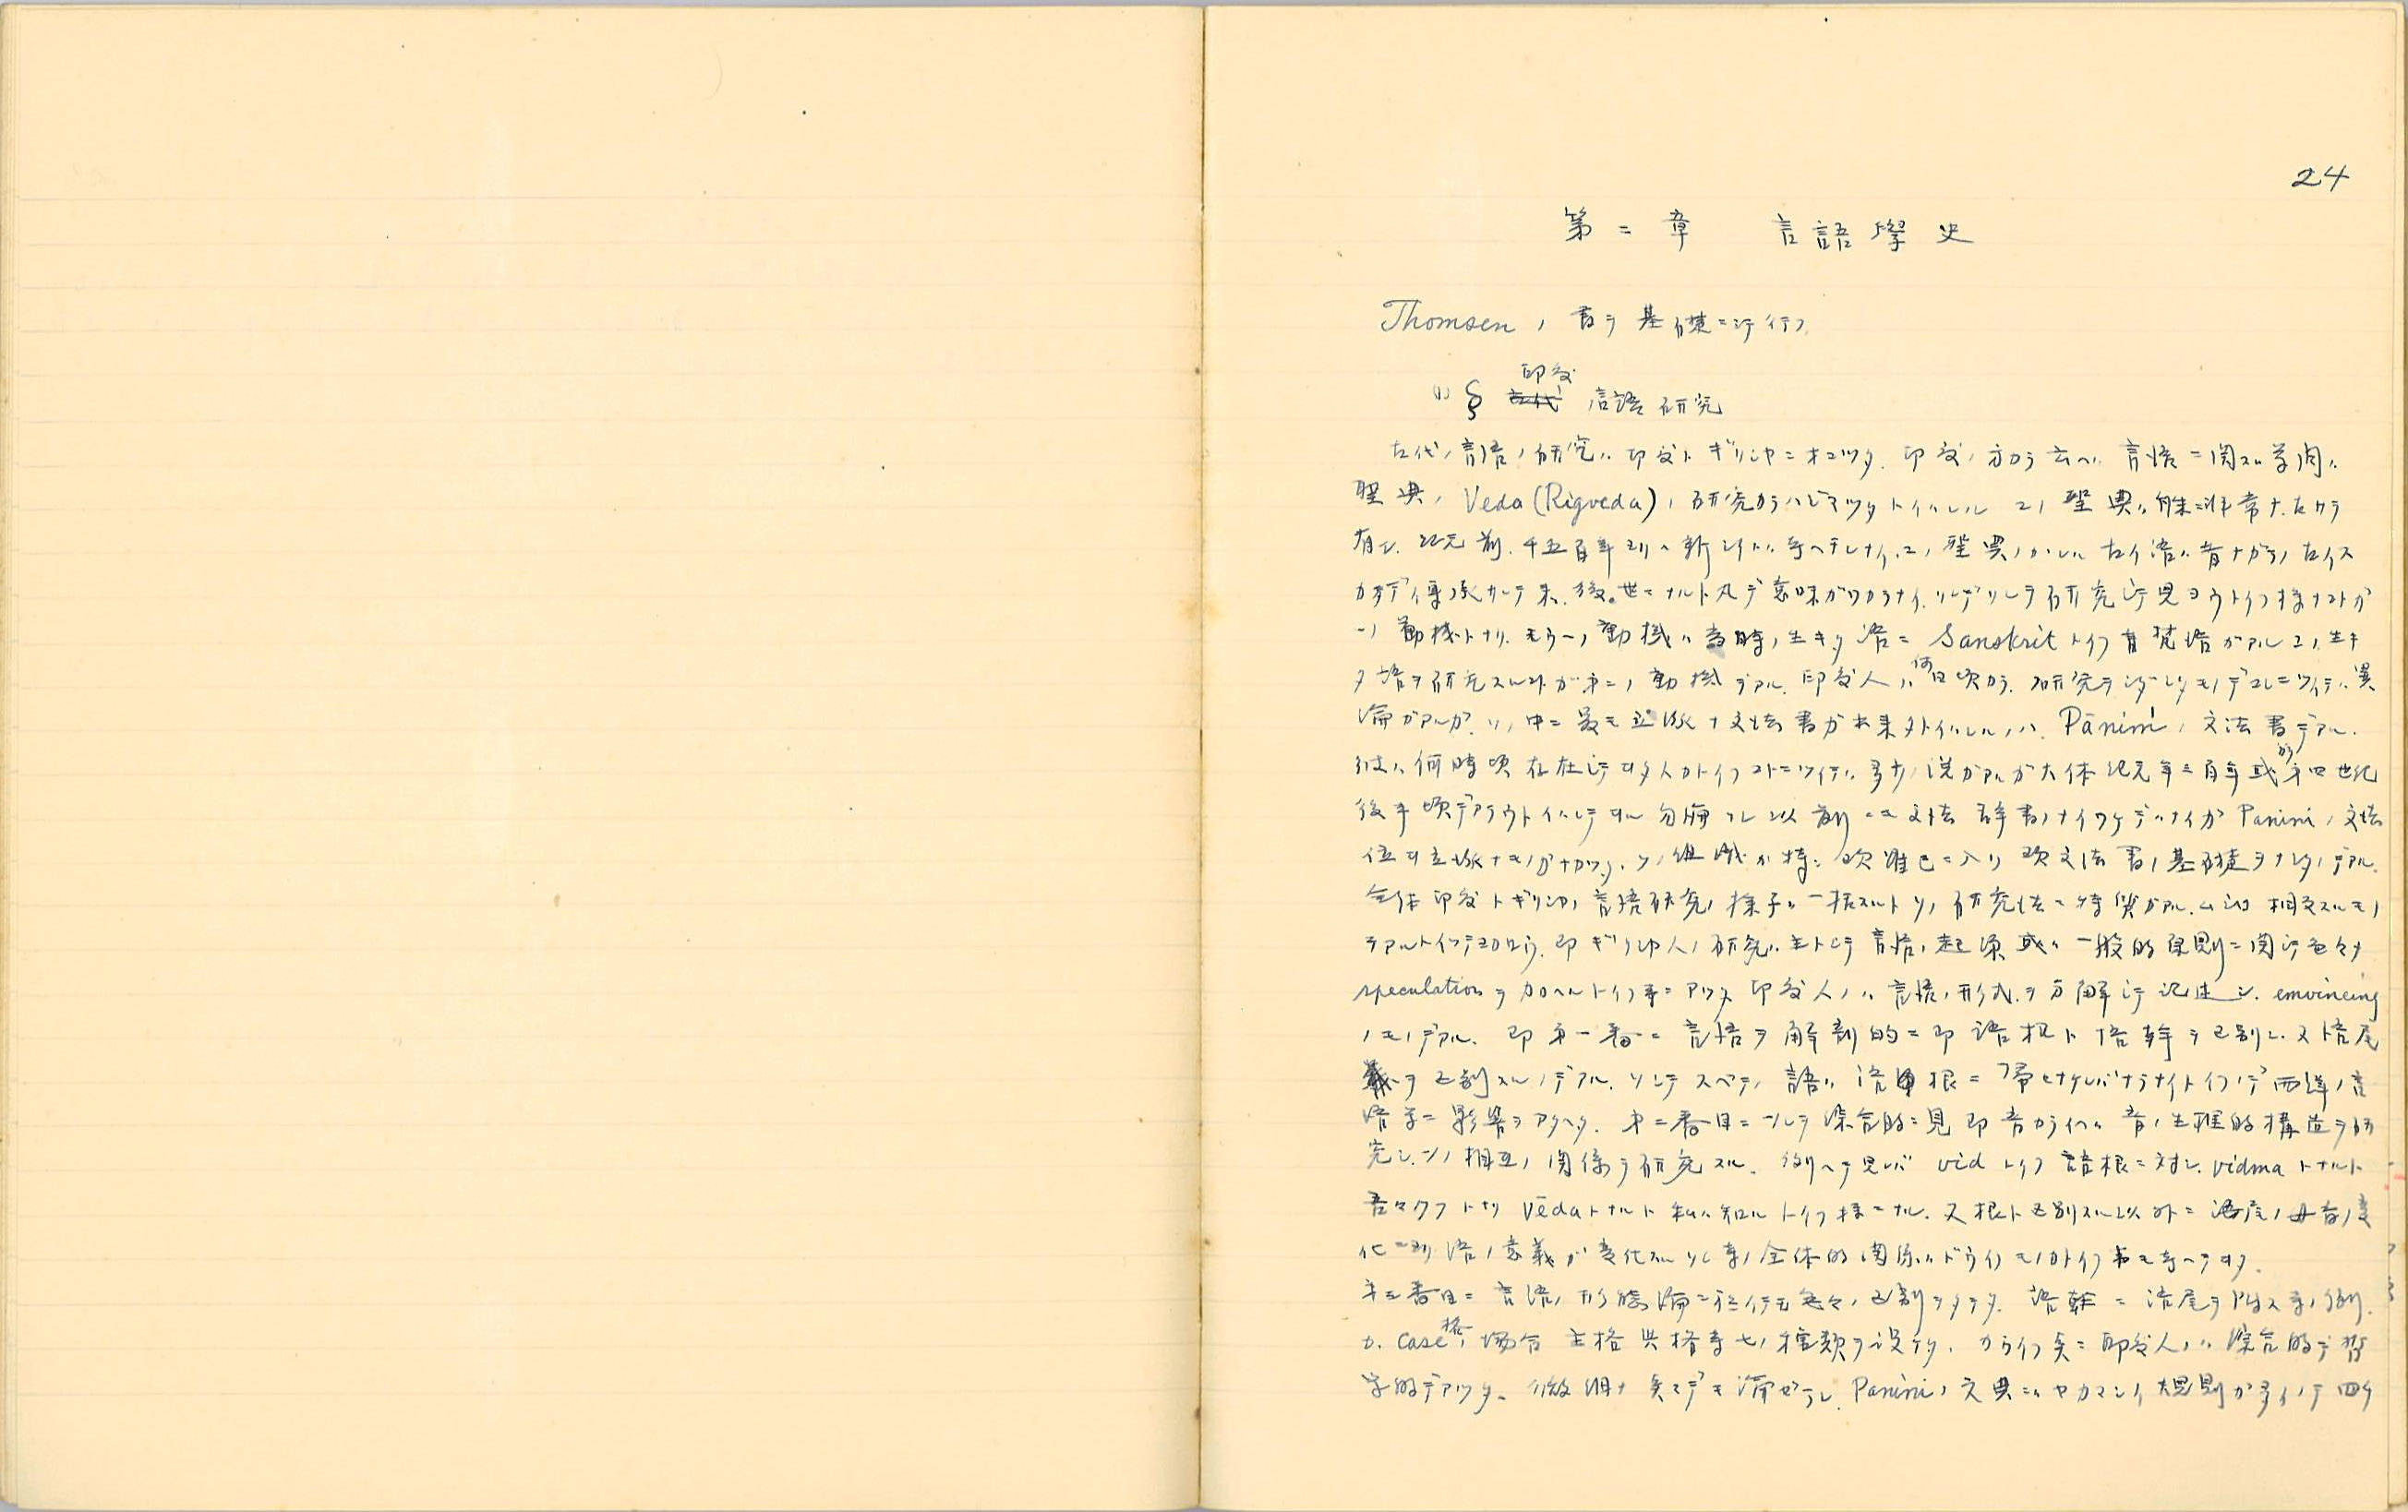 24
第二章 言語學史
Thomsen ノ書ヲ基礎ニシテ行フ
(1) § 印度 言語研究
古代ノ言語ノ研究ハ印度トギリシヤニオコツタ. 印度ノ方カラ云ヘバ言語ニ関スル学問ハ
聖典ノ Veda (Rigveda) ノ研究カラハジマツタトイハレル コノ聖典ハ解ニ非常ナ
紀元前 千五百年ヨリハ新シイトハ考ヘテレナイ. コノ聖典ノ 古イ語ハ昔ナガラノ古イス
ガタデ傳承サレテ来. 後世ニナルト丸デ意味ガワカラナイ. ソレデソレヲ研究シテ見ヨウトイフ様ナコトガ
一ノ動機トナリ. モウ一ノ動機ハ当時ノ生キタ語ニ Sanskrit トイフ 梵語ガアル コノ生キ
タ語ヲ研究スルコトガ第二ノ動機デアル. 印度人ハ何日頃カラ 研究ヲ シタモノデコレニツイテハ異
論ガアルガ. ソノ中ニ最モ立派ナ文法書ガ出来タトイハレルノハ. Pānini ノ文法書デアル.
彼ハ何時頃存在シテヰタ人カトイフコトニツイテハ多少ノ説ガアルガ大体紀元年三百年或ハ第四世紀
後半頃デアラウトイハレテヰル 勿論ソレ以前ニモ文法辞書ノナイワケデハナイガ Panini ノ文法
位ヰ立派ナモノガナカツタ. ソノ組織ガ特ニ欧羅巴ニ入リ欧文法書ノ基礎ヲナシタノデアル.
全体印度トギリシヤノ言語研究ノ様子ヲ一括スルトソノ研究法ニ特質ガアル. ムシロ相反スルモノ
デアルトイツテヨロシウ. 即ギリシヤ人ノ研究ハ主トシテ言語ノ起源或ハ一般的原則ニ関シテ色々ナ
speculation ヲ加ヘルトイフ事ニアツタ 印度人ノハ言語ノ形式ヲ分解シテ記述シ.
ノモノデアル. 即第一番ニ言語ヲ解剖的ニ即語根ト語幹ヲ区別シ. 又語尾
ヲ区別スルノデアル. ソシテスベテノ語ハ語根ニ帰セナケレバナラナイトイフノデ西洋ノ言
語学ニ影響ヲアタヘタ. 第二番目ニハ 綜合的ニ見即音カライヘバ音ノ生理的構造ヲ研
究シ. ソノ相互ノ関係ヲ研究スル. 例ヘテ見レバ vid トイフ語根ニ対シ. vidma トナルト
吾々 トナリ vēda トナルト私ハ知ルトイフ様ニナル. 又根ト区別スル以外ニ語尾ノ母音ノ変
化ニヨリ語ノ意義ガ変化スル ソレ等ノ全体的関係ハドウイフモノカトイフ事モ考ヘテヰタ.
第三番目ニ言語ノ形態論ニ於イテモ色々ノ区別ヲタテタ. 語幹ニ語尾ヲ附ス事ノ例.
又. case 格ノ場合 主格 具格等七ノ種類ヲ設ケタ. カウイフ点ニ印度人ノハ綜合的デ哲
学的デアツタ. 微細ナ点マデモ論ゼラレ. Panini ノ文典ニハヤカマシイ規則ガ多イノデ四ケ